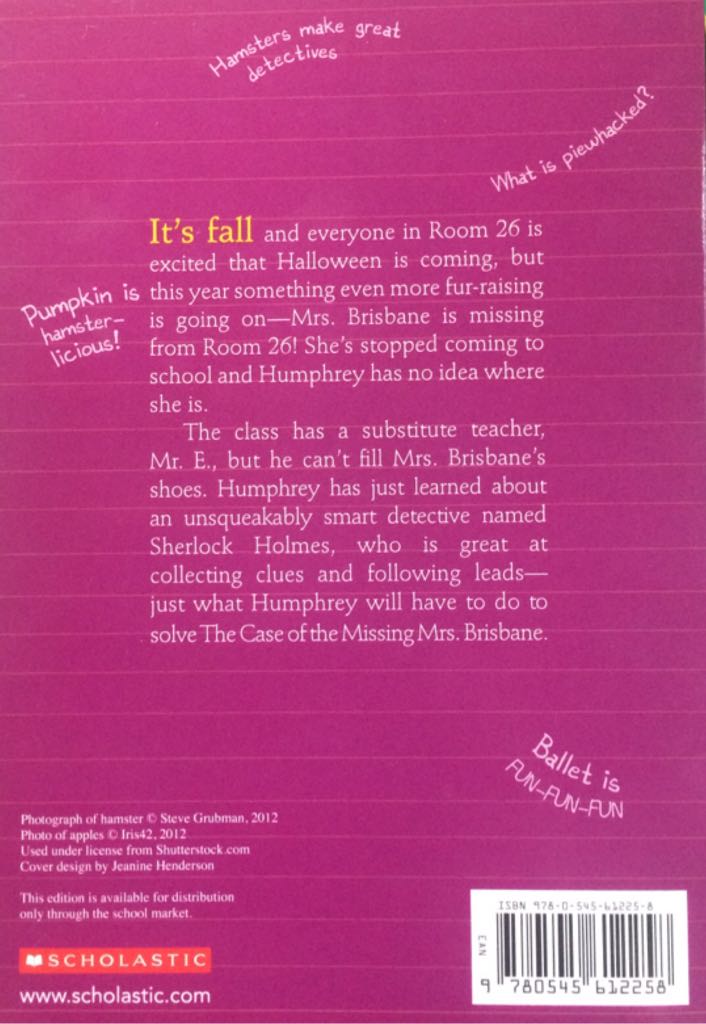 Hamsters make great
detectives
What is piewhacked?
It's fall and everyone in Room 26 is
excited that Halloween is coming, but
this year something even more fur-raising
is going on—Mrs. Brisbane is missing
from Room 26! She's stopped coming to
school and Humphrey has no idea where
she is.
Pumpkin is
hamster-
licious!
The class has a substitute teacher,
Mr. E., but he can't fill Mrs. Brisbane's
shoes. Humphrey has just learned about
an unsqueakably smart detective named
Sherlock Holmes, who is great at
collecting clues and following leads—
just what Humphrey will have to do to
solve The Case of the Missing Mrs. Brisbane.
Ballet is
FUN-FUN-FUN
Photograph of hamster © Steve Grubman, 2012
Photo of apples © Iris42, 2012
Used under license from Shutterstock.com
Cover design by Jeanine Henderson
This edition is available for distribution
only through the school market.
SCHOLASTIC
www.scholastic.com
ISBN 978-0-545-61225-8
EAN
9 780545 612258